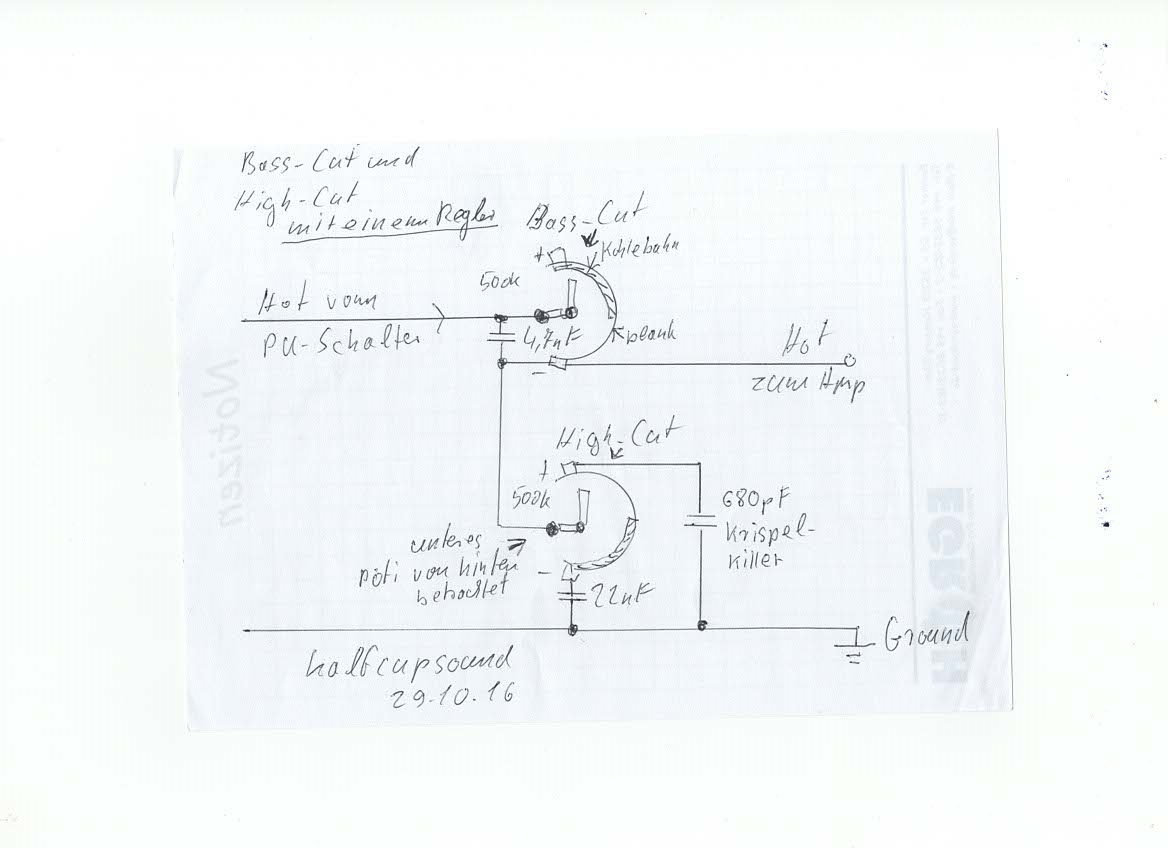 Bass-Cut und
High-Cut
mit einem Regler
Bass-Cut
+
Kohlebahn
500k
Hot vom
PU-Schalter
4,7nF
blank
-
Hot
zum Amp
High-Cut
+
500k
680pF
Krispel-
Killer
unteres
Poti von hinten
betrachtet
-
22nF
Ground
halfcupsound
29.10.16
Notizen